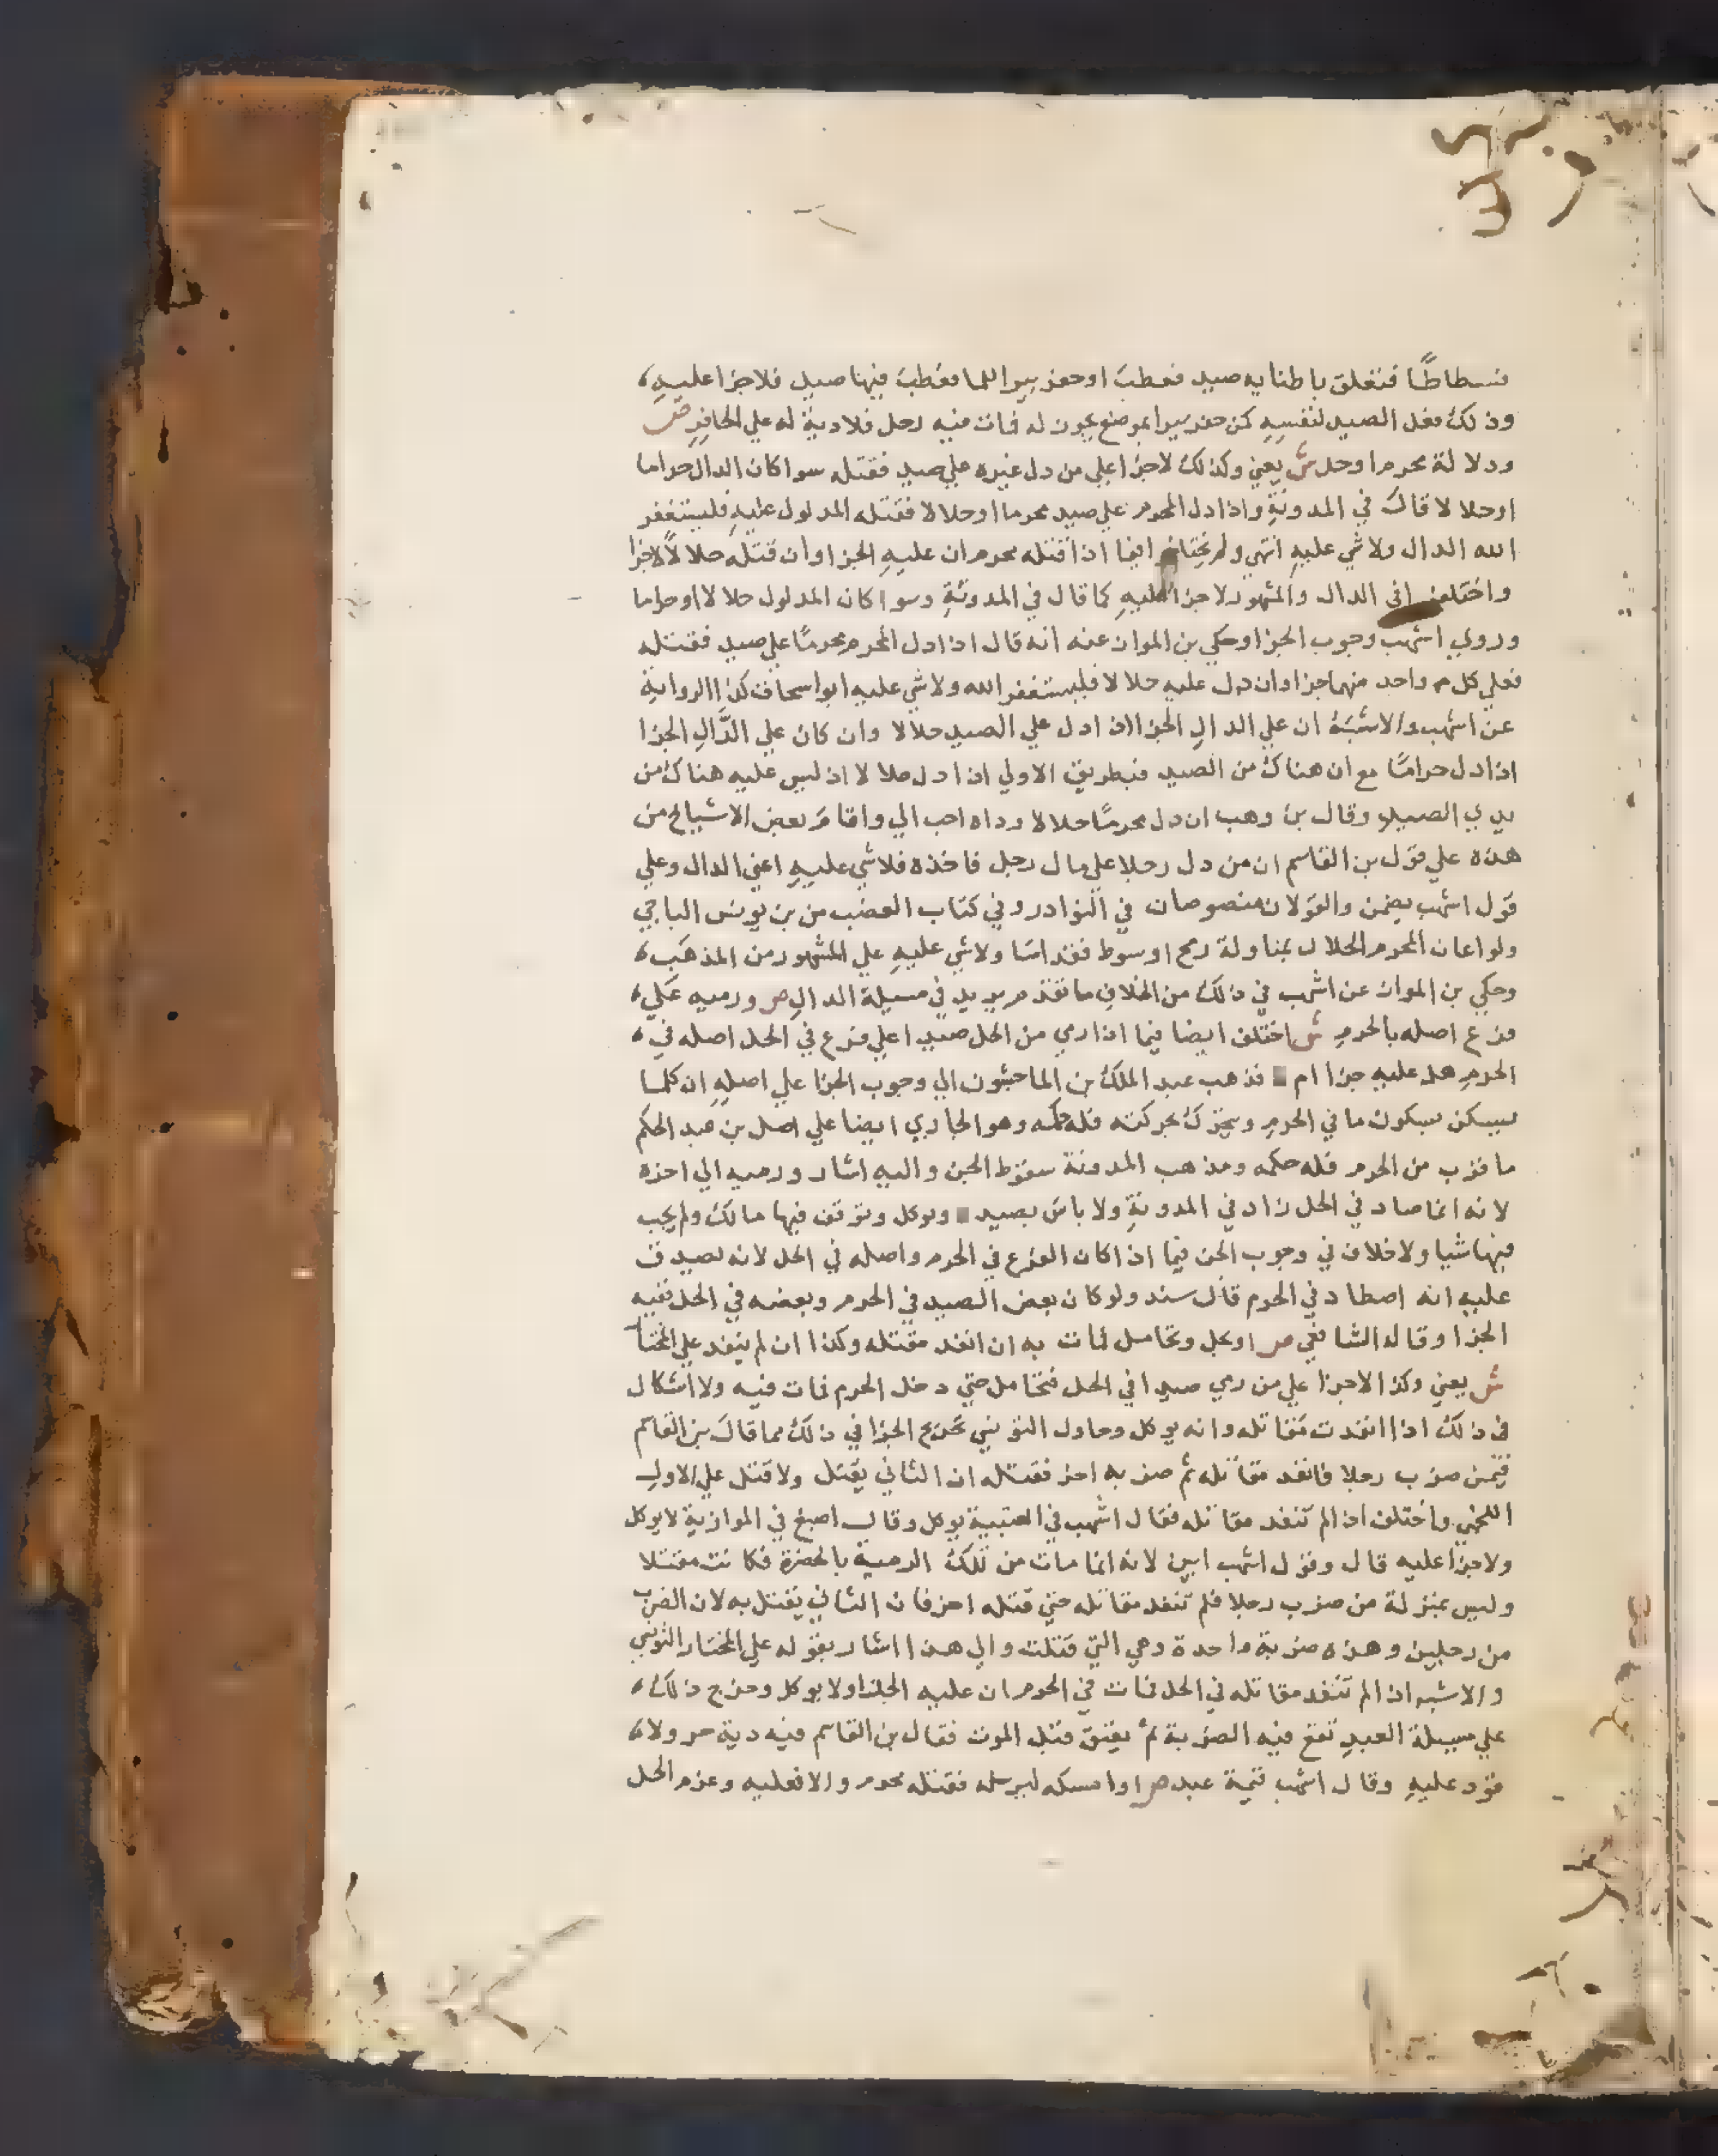 فسطاطًا فتعلق باطنابه صيد فعطب او حفر بيرا للما فعطب فيها صيد فلا جزا عليهِ
وذلك فعل الصيد لنفسِهِ كمن حفر بيرا بموضع يجوز له فمات فيه رجل فلا دية له علي الحافرِ ص
ودلالة محرم او حل ش يعني وكذلك لا جزا علي من دل غيره علي صيد فقتله سوا كان الدال حراما
او حلالا قال في المدونةِ واذا دل المحرم علي صيد محرما او حلالا فقتله المدلول عليهِ فليستغفر
الله الدال ولا شي عليهِ انتهي ولم يختلف ايضا اذا قتله محرم ان عليهِ الجزا وان قتله حلالاً لا جزا
واختلف في الدال والمشهور لا جزا عليهِ كما قال في المدونةِ وسوا كان المدلول حلالا او حراما
وروي اشهب وجوب الجزا وحكي بن المواز عنه انه قال اذا دل المحرم محرمًا علي صيد فقتله
فعلي كل واحد منهما جزا وان دل عليه حلالا فليستغفر الله ولا شي عليه ابو اسحاق كذا الرواية
عن اشهب والاشبَهُ ان علي الدالِ الجزا اذا دل علي الصيد حلالا وان كان علي الدَّالِ الجزا
اذا دل حرامًا مع ان هناك من الصيد فبطريق الاولي اذا دل حلالا اذ ليس عليه هناك من
يدي الصيد وقال بن وهب ان دل محرمًا حلالا وداه احب الي واقام بعض الاشياخ من
هذه علي قول بن القاسم ان من دل رجلا علي مال رجل فاخذه فلا شي عليهِ اعني الدال وعلي
قول اشهب يضمن والقولان منصوصان في النوادر وفي كتاب الغضب من بن يونس الباجي
ولو اعان المحرم الحلال بمناولة رمح او سوط فقد اسا ولا شي عليهِ علي المشهور من المذهَب
وحكي بن المواز عن اشهب في ذلك من الخلاف ما تقدم يريد في مسيلة الدالِ ص ورميه عَلي
فرع اصله بالحرمِ ش اختلف ايضا فيما اذا رمي من الحل صيدا علي فرع في الحل اصله في
الحرمِ هل عليهِ جزا ام فذهب عبد الملك بن الماجشون الي وجوب الجزا علي اصلهِ ان كلما
يسكن بسكون ما في الحرمِ ويتحرك بحركته فله حكمه وهو الجاري ايضا علي اصل بن عبد الحكم
ما قرب من الحرم فله حكمه ومذهب المدونة سقوط الجزا واليه اشار ورميه الي اخره
لانه انما صاد في الحل زاد في المدونةِ ولا باس بصيد ويوكل وتوقف فيها مالك ولم يجب
فيها شيا ولا خلاف في وجوب الجزا فيما اذا كان الفرع في الحرم واصله في الحل لانه يصدق
عليهِ انه اصطاد في الحرم قال سند ولو كان بعض الصيد في الحرم وبعضه في الحل ففيه
الجزا وقاله الشافعي ص او بحل وتحامل فمات به ان انفد مقتله وكذا ان لم ينفد علي المختار
ش يعني وكذا لا جزا علي من رمي صيدا في الحل فتحامل حتي دخل الحرم فمات فيه ولا اشكال
في ذلك اذا انفدت مقاتله وانه يوكل وحاول التونسي تخرج الجزا في ذلك مما قال بن القاسم
فيمن ضرب رجلا فانفد مقاتله ثم ضربه اخر فقتله ان الثاني يقتل ولا قتل علي الاول
اللخمي واختلف اذا لم تنفد مقاتله فقال اشهب في العتبية يوكل وقال اصبغ في الموازيةِ لا يوكل
ولا جزا عليه قال وقول اشهب ابين لانه انما مات من تلك الرمية بالحضرة فكانت مقتلا
وليس بمنزلة من ضرب رجلا فلم تنفد مقاتله حتي قتله اخر فان الثاني يقتل به لان الضرب
من رجلين وهذه ضربة واحدة وهي التي قتلت والي هذا اشار بقوله علي المختار التونسي
والاشبه اذا لم تنفد مقاتله في الحل فمات في الحرم ان عليه الجزا ولا يوكل وخرج ذلك
علي مسيلة العبدِ تقع فيه الضربة ثم يعتق قبل الموت فقال بن القاسم فيه دية حر ولا
قود عليهِ وقال اشهب قيمة عبد ص او امسكه ليرسله فقتله محرم والا فعليه وغرم الحل